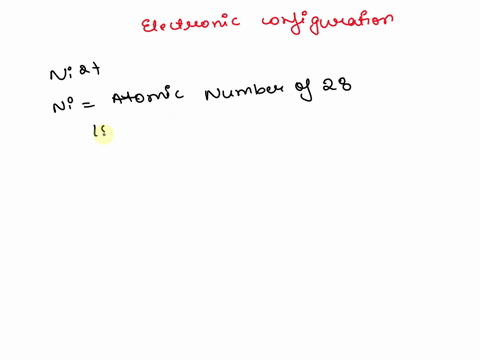 Electronic configuration
Ni2+
Ni = Atomic Number of 28
1s